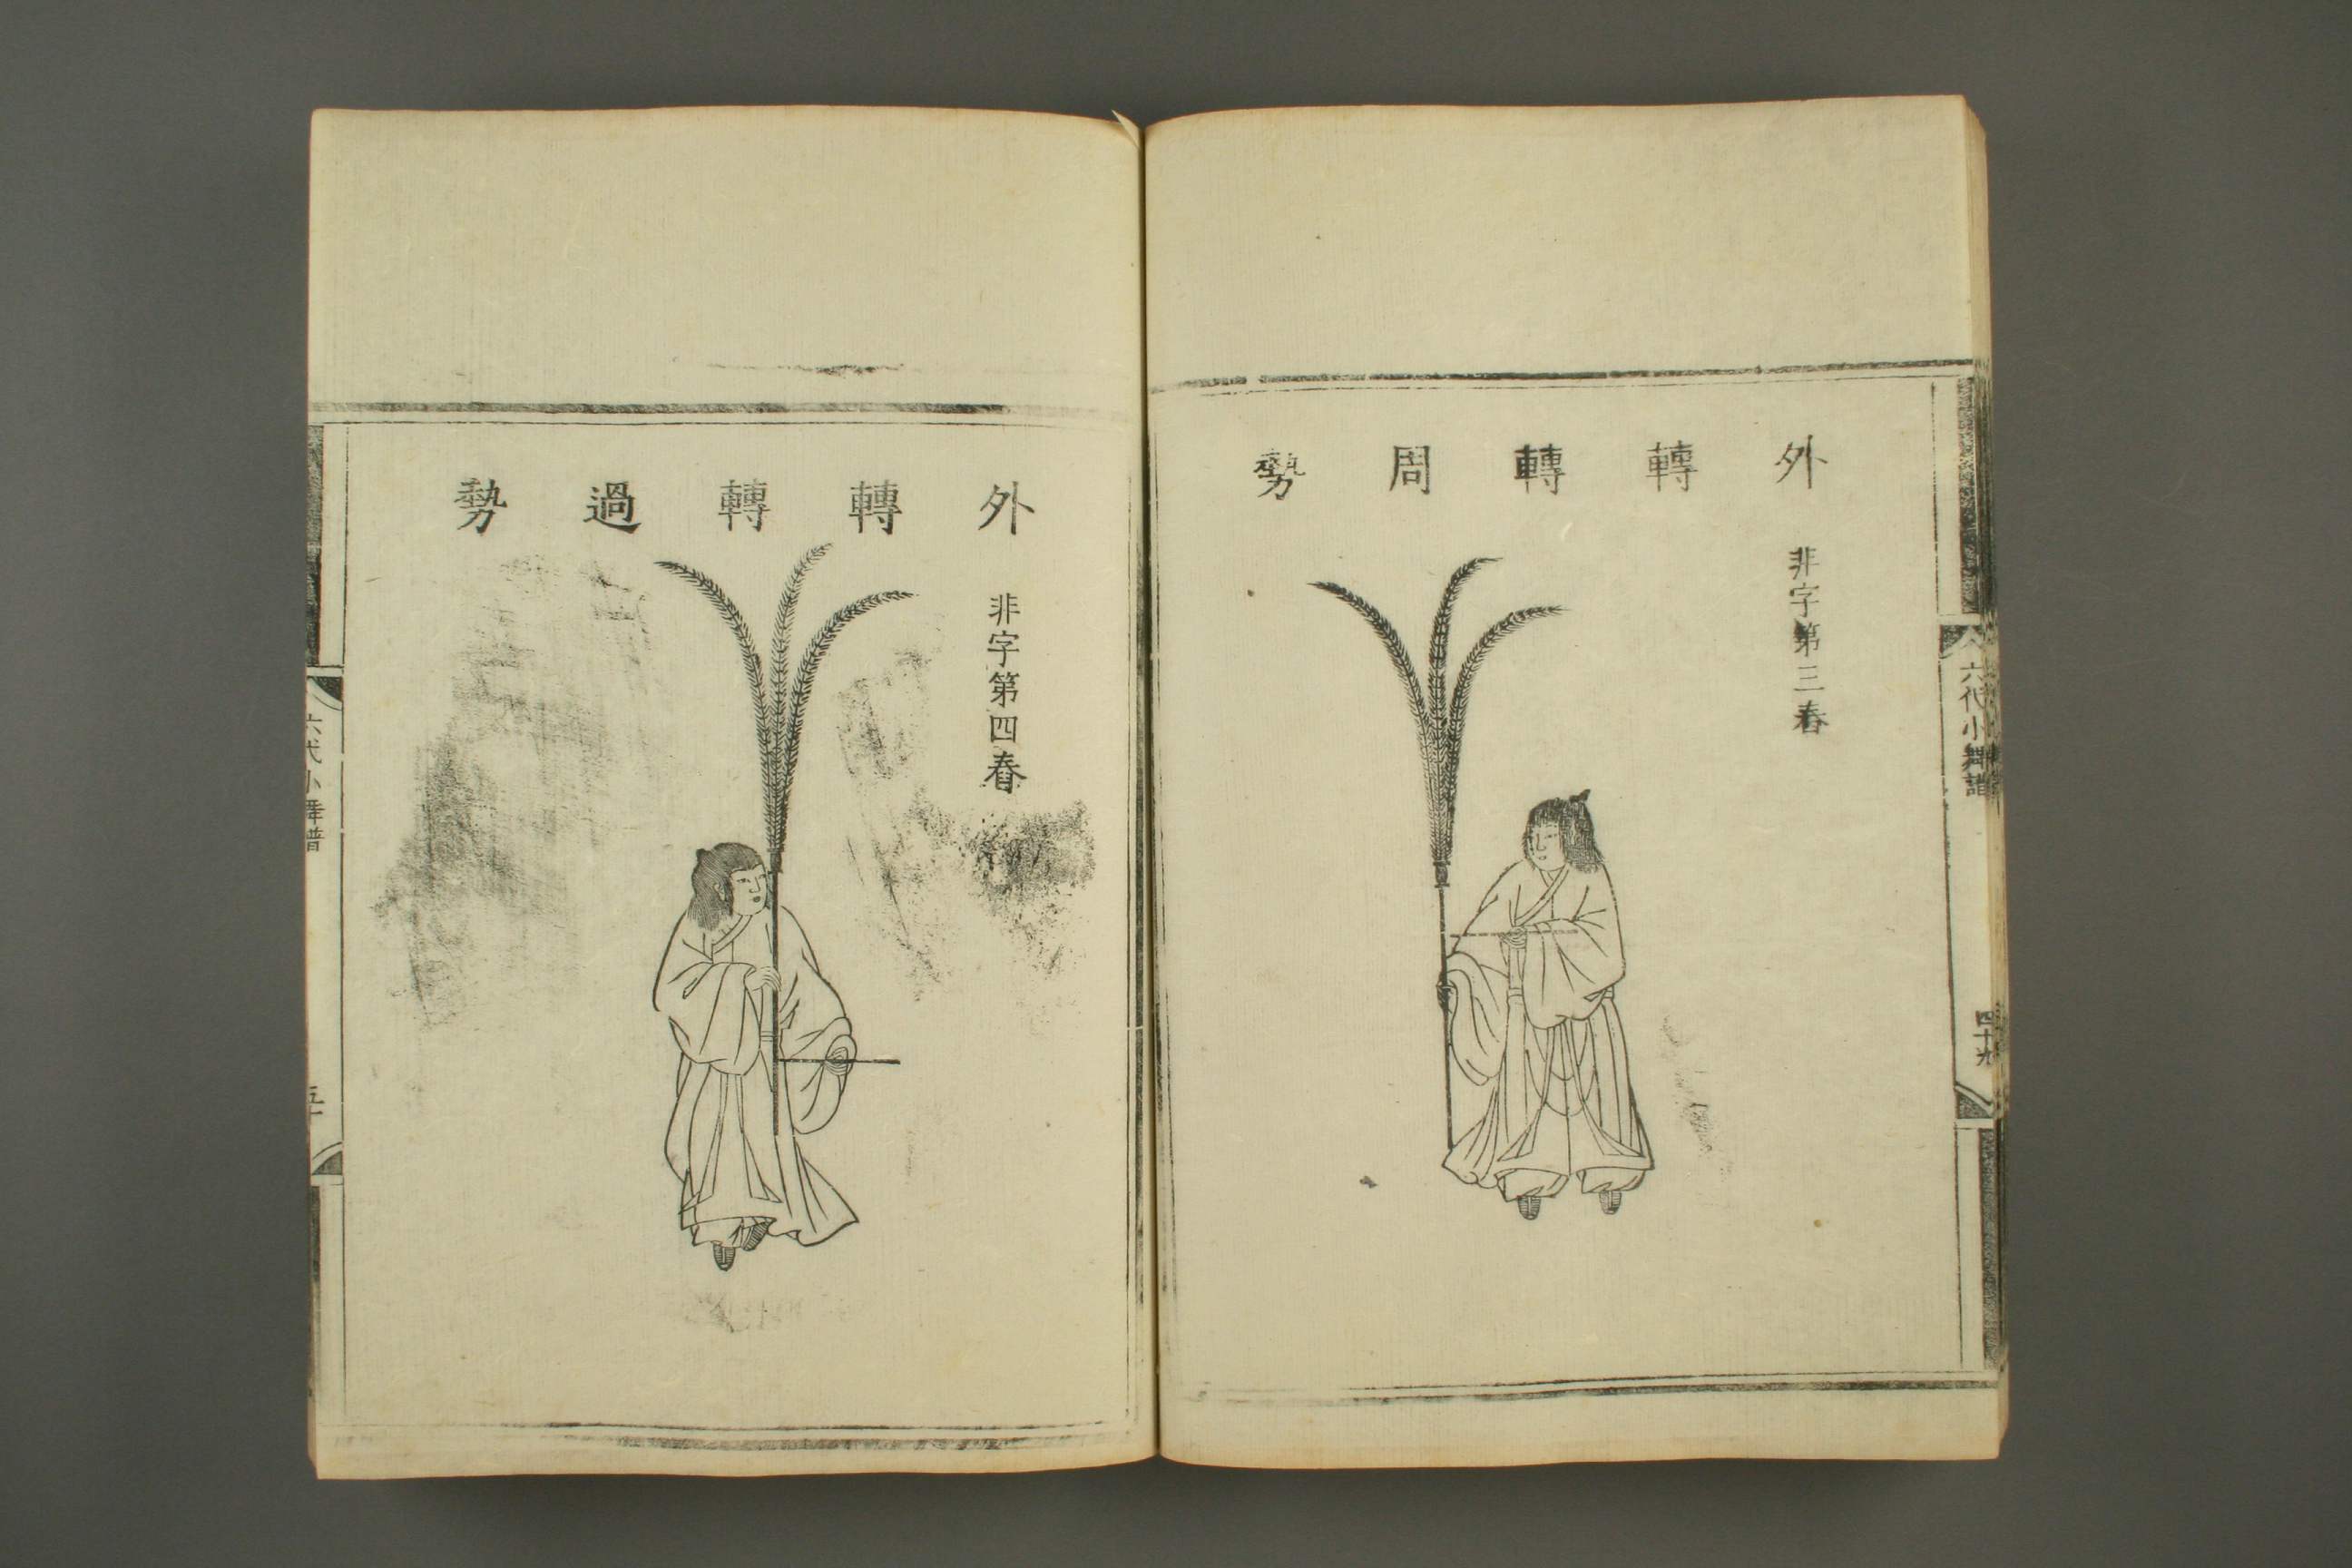 外轉轉周勢
非字第三舂
六代小舞譜
四十九
外轉轉過勢
非字第四舂
六代小舞譜
五十